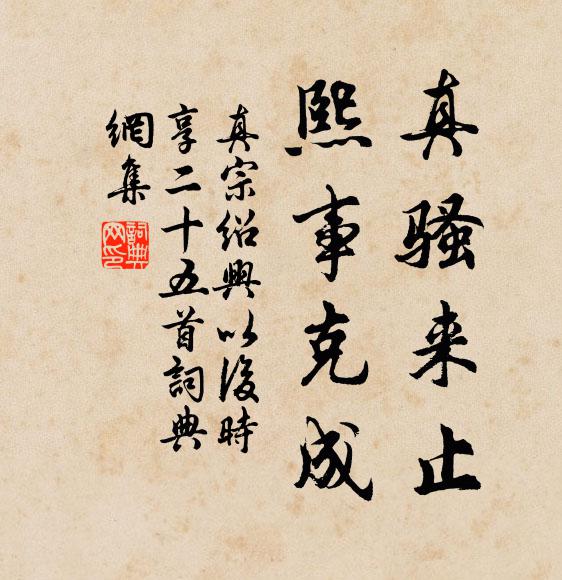 真骚来止
熙事克成
真宗绍興以後時
享二十五首詞典
網集
詞典
网印